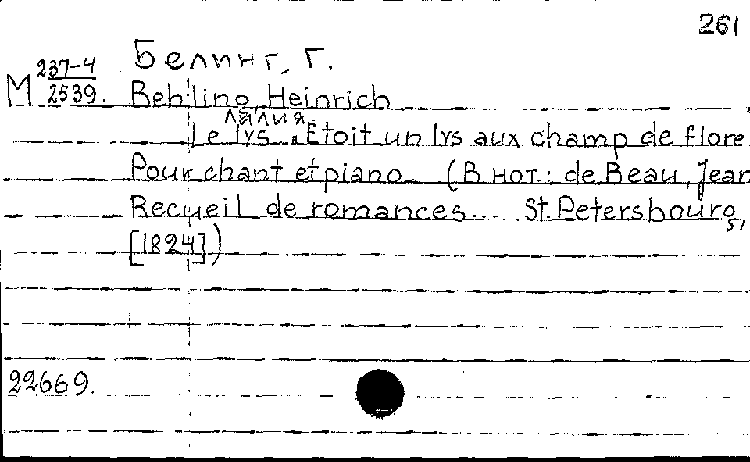 261
Белинг, Г.
М 237-4
2539. Behling, Heinrich
лилия
Le lys. „Etoit un lys aux champ de flore.
Pour chant et piano (В нот: de Beau, Jean
Recueil de romances... St. Petersbourg,
[1824])
22669.